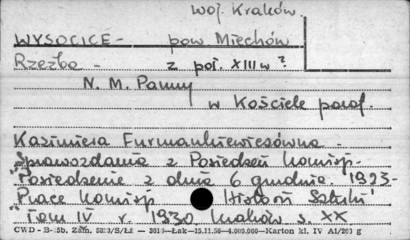 woj. Kraków
WYSOCICE - pow Miechów
Rzeźba - z poł. XIII w ?
N. M. Panny
w Kościele paraf.
Kazimiera Furmankiewiczówna -
Sprawozdania z Posiedzeń Komisp.
Posiedzenie z dnia 6 grudnia 1923-
Prace Komisp Historii Sztuki
Tom IV r. 1930 Kraków s. XX
CWD-B-5b. Zam. Łak - 15.11.50 - 4.000.000 - Karton kl. IV A1/263 g